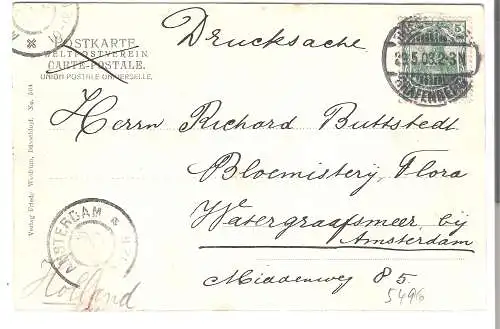 POSTKARTE
WELTPOSTVEREIN
CARTE-POSTALE.
UNION POSTALE UNIVERSELLE.
Drucksache
5
5.03.2-3N
GRAFENBERG
Herrn Richard Buttstedt
Bloemisterij Flora
Watergraafsmeer bij
Amsterdam
Middenweg 85.
5496
AMSTERDAM
Holland
Düsseldorf. No.